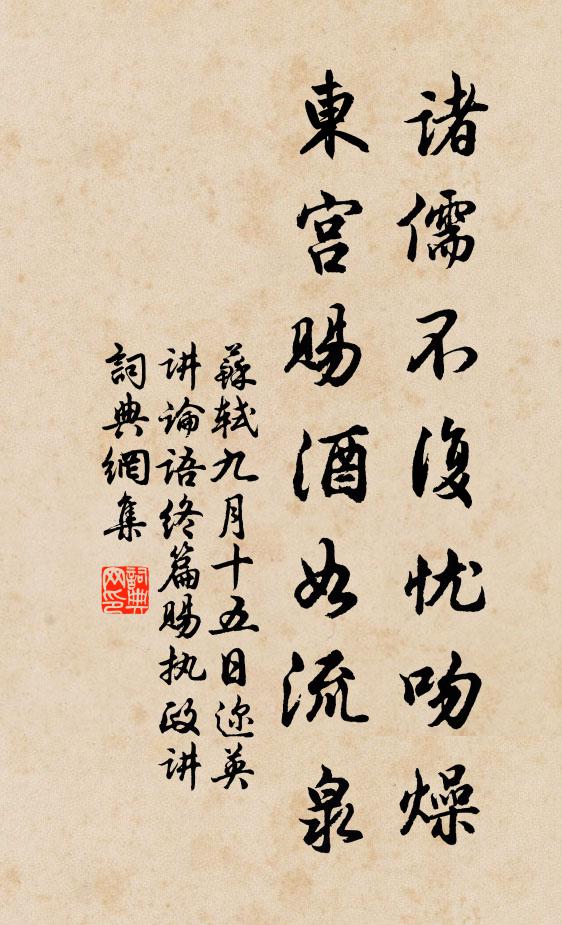 諸儒不復忧吻燥
東宮賜酒如流泉
蘇轼九月十五日迩英
讲論语终篇赐执政讲
詞典網集
詞典网印